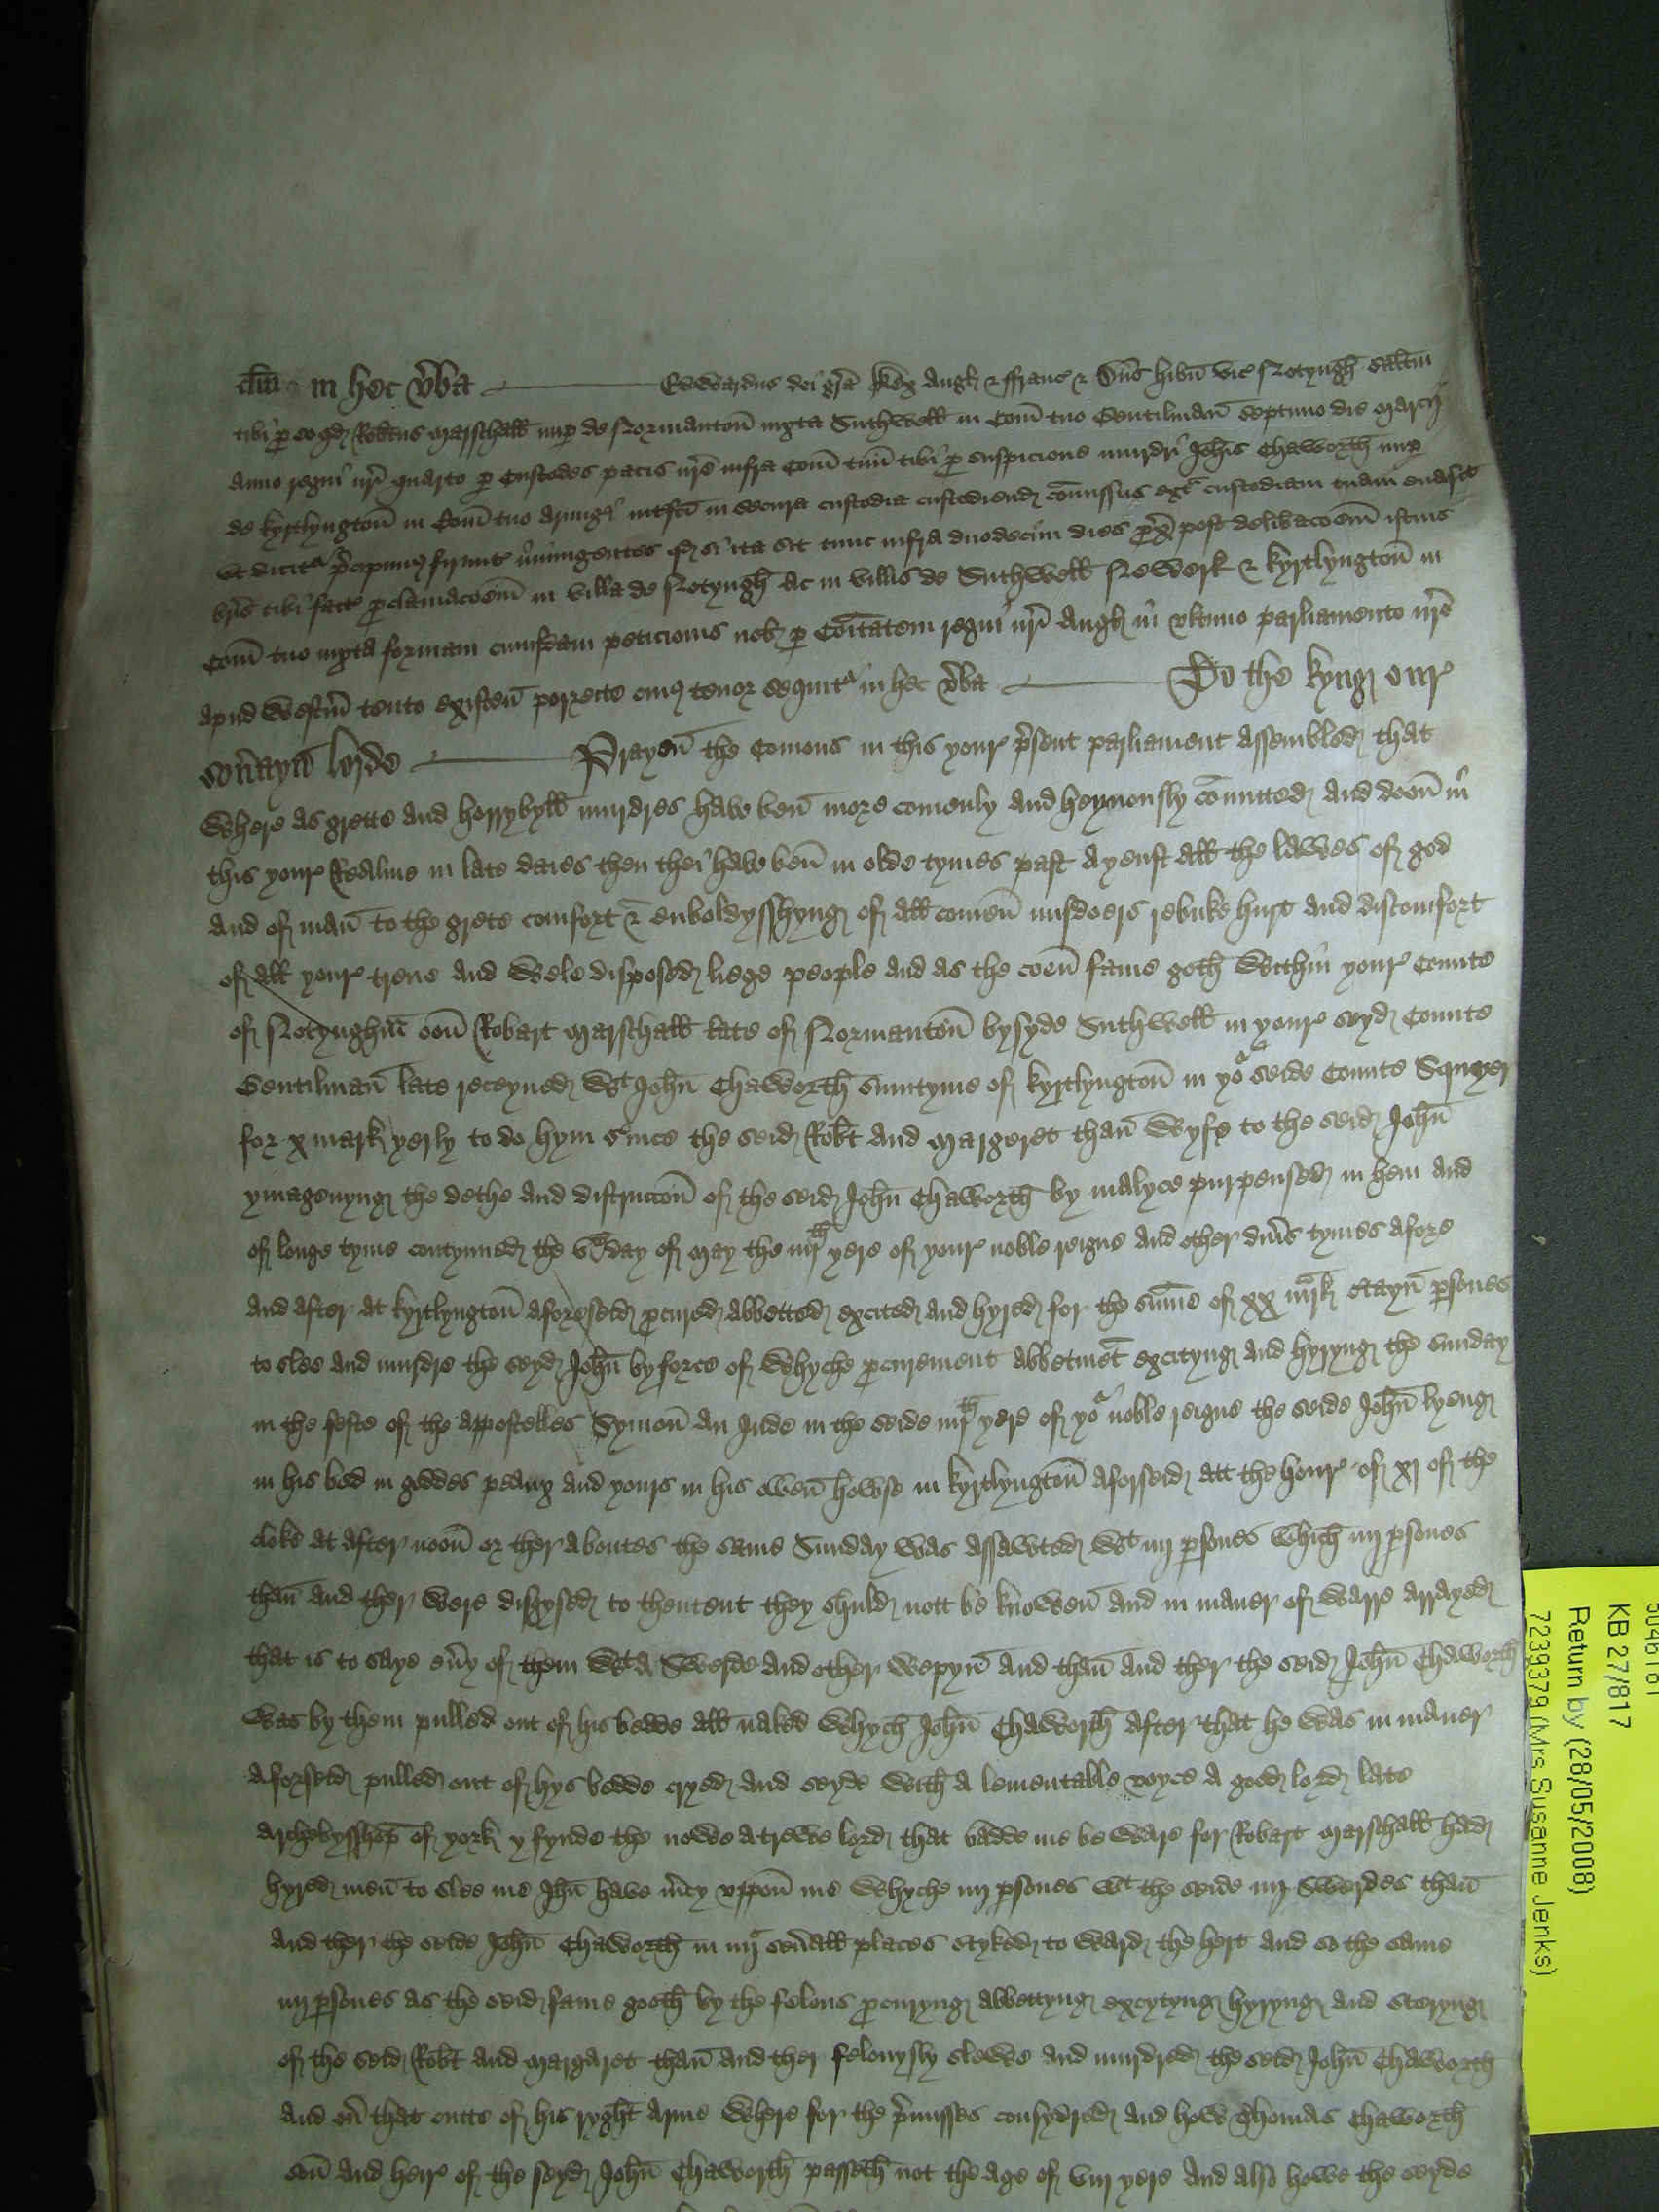 clm in hec v'ba Edwardus dei gr̄a Rex Angl & ffranc & Dn̄s hib'n vic Notyngh Salt̄m
tibi p eo qd Rob'tus Marschall nup de Normantoñ iuxta Suthwell in Com̄ tuo Gentilmañ septimo die Marcij
Anno regni nr̄i quarto p Custodes pacis nr̄e infra Com̄ tuū tibi p suspicione murdri Joh̄is Chaworth nup
de kyrtlyngtoñ in Com̄ tuo Armig'i int'fc̄i in secura custodia custodiend com̄issus ext'a custodiam tuam evasit
vt dicit' p'cipimus firmit' iniungentes qd si ita sit tunc infra duodecim dies p'x post delib'acoem̄ istius
br̄is tibi fact' p'clamacoem̄ in villa de Notyngh Ac in villis de Suthwell Newerk & kyrtlyngtoñ in
Com̄ tuo iuxta formam cuiusdam peticionis nob p Coīt̄atem regni nr̄i Angl in vltimo parliamento nr̄o
apud Westm̄ tento existeñ porrecte cuius tenor sequit' in hec v'ba To the kyng our'
sou'ayñ lorde Prayeñ the Comons in this your' p'sent parliament assembled that
Where as grette and horrybyll murdres have beñ more comenly and heynously com̄itted and dooñ in
this your' Realme in late daies then thei have beñ in olde tymes past ayenst all the lawes of god
and of mañ to the grete comfort & enboldysshyng of all comeñ misdoers rebuke hurt and discomfort
of all your' treue and wele disposed liege people and as the coeñ fame goth within your' Counte
of Notynghm̄ ooñ Robart Marschall late of Normantoñ bysyde Suthwell in your' seyd Counte
Gentilmañ late receyued wt Joh̄n Chaworth sumtyme of kyrtlyngtoñ in yor seide Counte Squyer
for x mark yerly to do hym s'uice the seid Rob't and Margeret thañ Wyfe to the seid Joh̄n
ymagenyng the dethe and distruccoñ of the seid Joh̄n Chaworth by malyce purpensed in hem and
of longe tyme contynued the vth day of May the iijth yere of your' noble reigne and other diu's tymes afore
and after at kyrtlyngtoñ aforeseid p'cured abbetted excited and hyred for the sum̄e of xx m'rk c'tayñ p'sones
to slee and murdre the seyd Joh̄n by force of Whyche p'curement abbetmēt excityng and hyryng the sunday
in the feste of the appostelles Symoñ an Jude in the seide iijth yere of yor noble reigne the seide Joh̄n lyeng
in his bed in goddes peaux and yours in his oweñ howse in kyrtlyngtoñ aforseid att the hour' of xj of the
cloke at after nooñ or ther aboutes the same Sunday was assawted wt iiij p'sones which iiij p'sones
thañ and ther were disgysed to thentent they shuld nott be knoweñ and in maner of warre arrayed
that is to saye eu'y of them wt a Swerde and other wepyñ and thañ and ther the seid Joh̄n Chaworth
was by them pulled out of his bedde all naked whych Joh̄n Chaworth after that he was in maner
aforseid pulled out of hys bedde cryed and seyde with a lementable voyce a good lord late
archebysshop of york y fynde the nowe a trewe lord that badde me be ware for Robart Marschall had
hyred meñ to slee me Jh̄u have m'cy vppoñ me Whyche iiij p'sones wt the seide iiij Swerdes thañ
and ther the seide Joh̄n Chaworth in iiij seu'all places stykked to ward the hert and so the same
iiij p'sones as the seid fame goeth by the felons p'curyng abbettyng excytyng hyryng and steryng
of the seid Rob't and Margaret thañ and ther felonysly slewe and murdred the seid Joh̄n Chaworth
and ou' that cutte of his ryght arme Where for the p'misses consydred and how Thomas Chaworth
soñ and heir' of the seyd Joh̄n Chaworth passeth not the age of viij yere and also howe the seyde
5046181
KB 27/817
Return by (28/05/2008)
7239379 (Mrs Susanne Jenks)